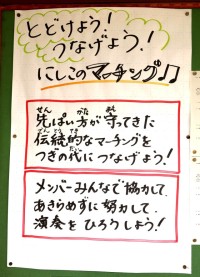 とどけよう!
つなげよう!
にしこのマーチング♫
せん ぱい がた まも
先ぱい方が守ってきた
でんとうてき
伝統的なマーチングを
つぎの代につなげよう!
メンバーみんなで協力して、
あきらめずに努力して、
演奏をひろうしよう!